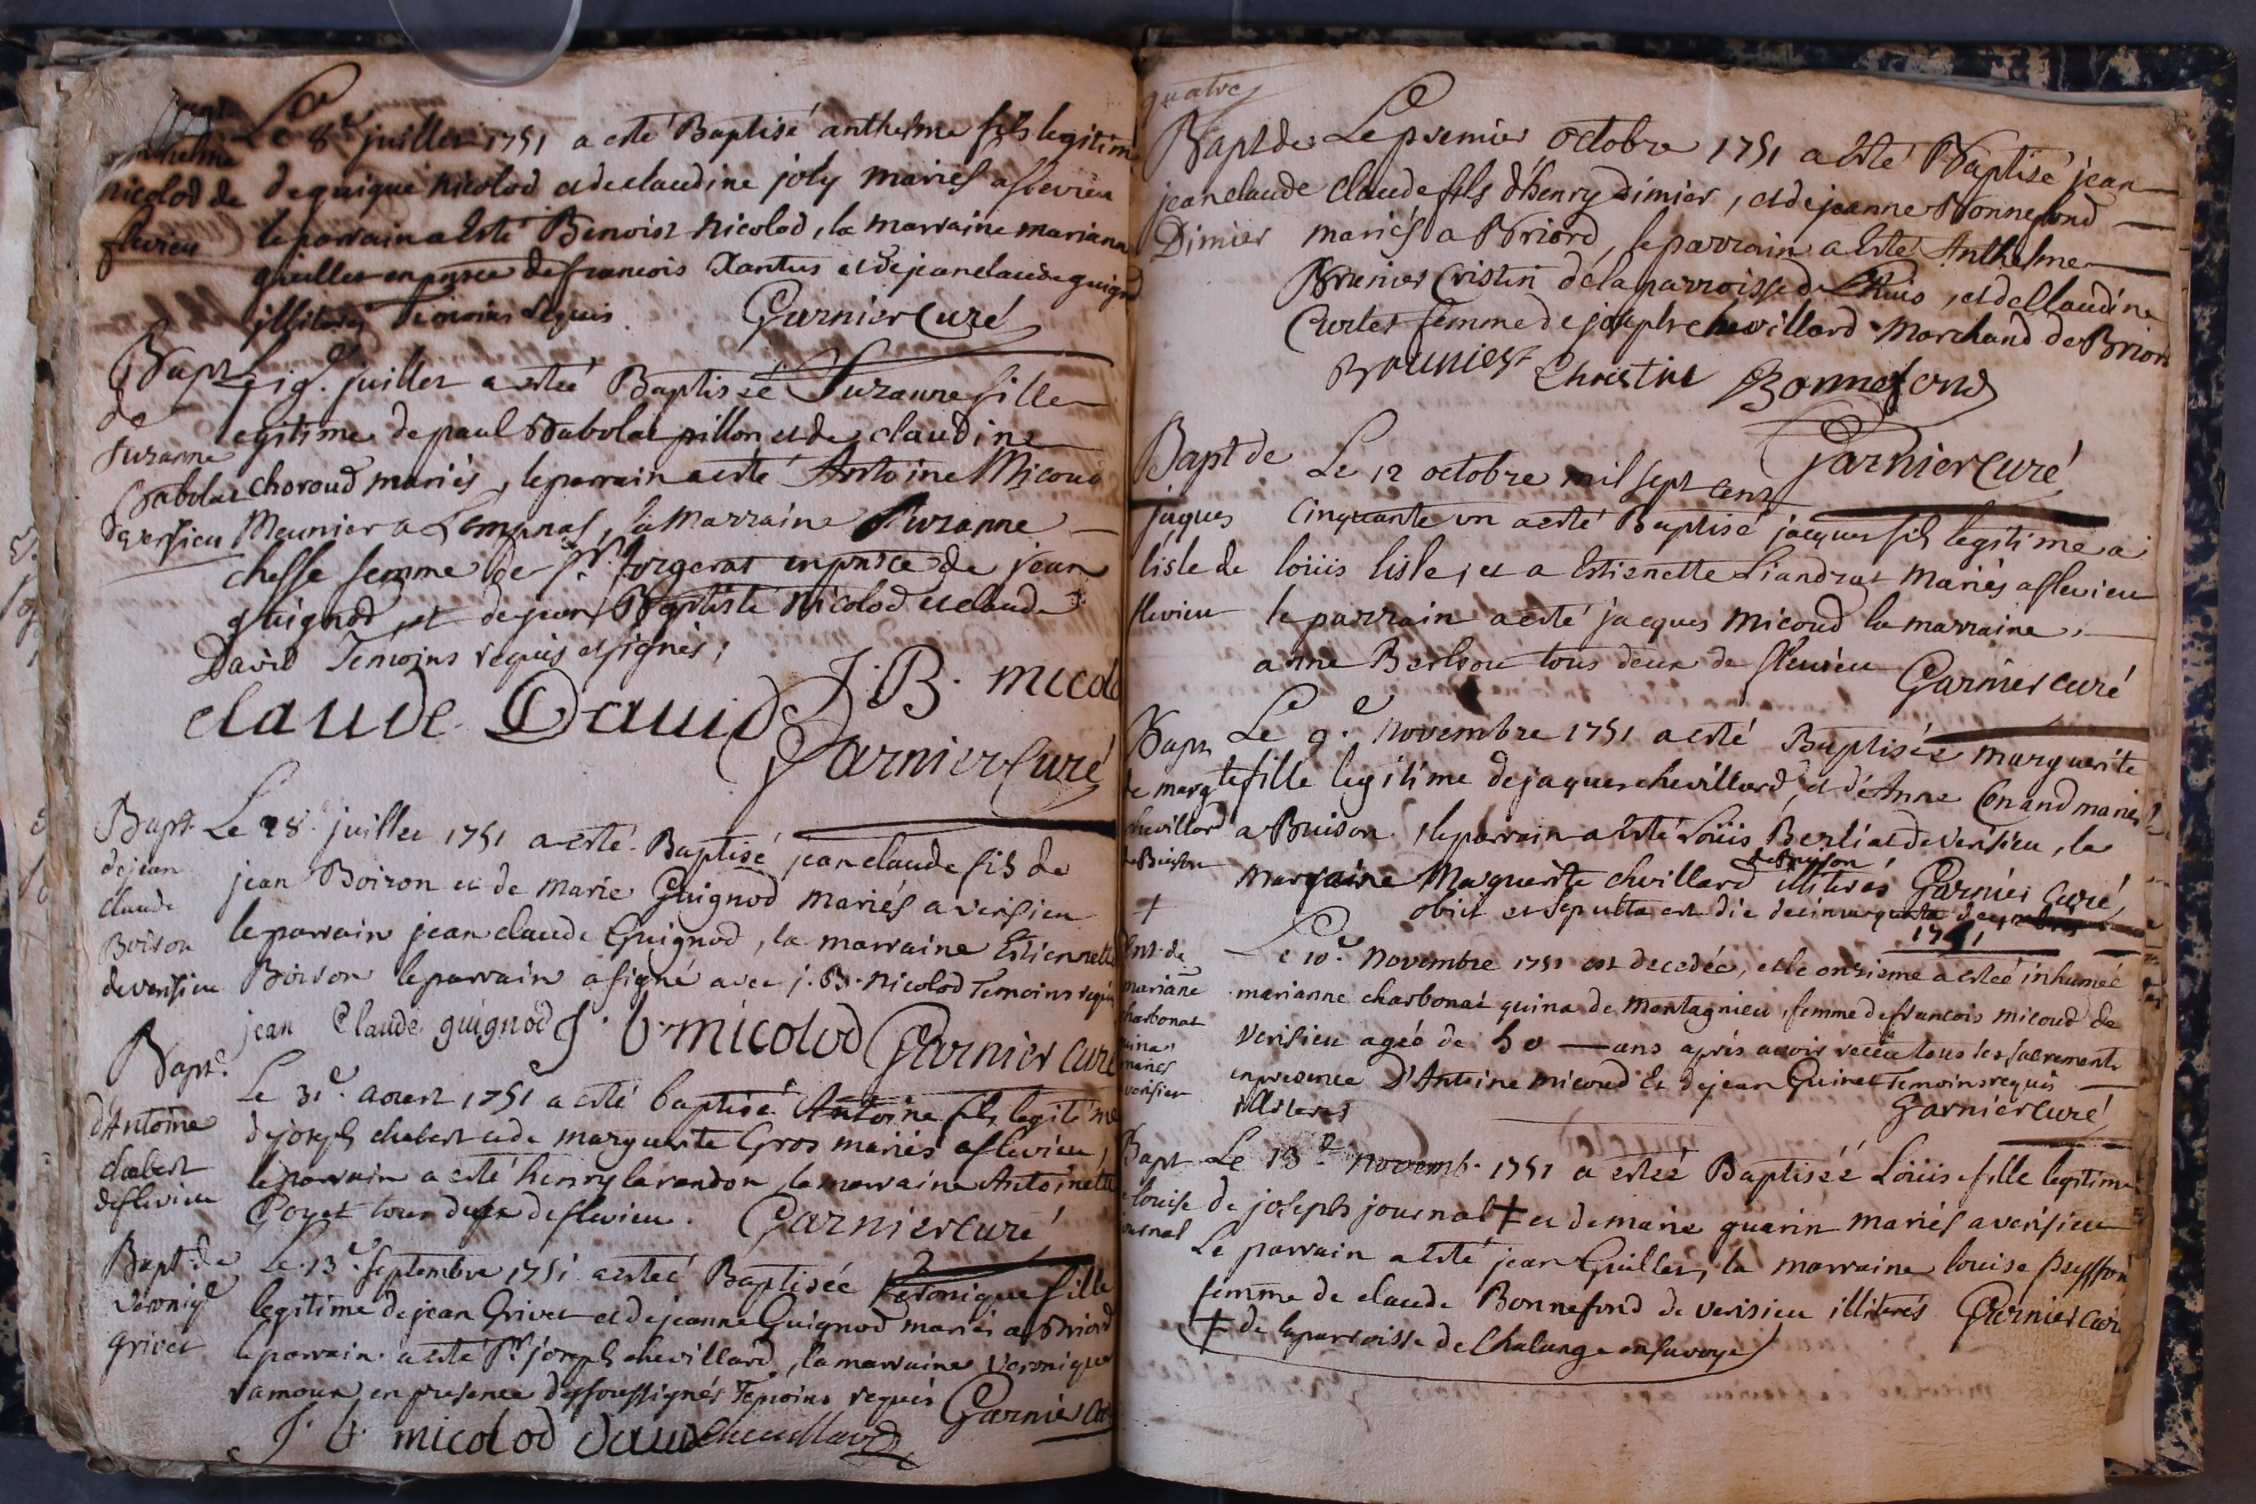 Le 8e juillet 1751 a esté Baptisé anthelme fils legitim
nicolod de
flevieu
de guigue nicolod et de claudine joly mariés a flevieu
le parrain a esté Benoist nicolod, la marraine mariana
guillet en pnsce de francois Xantus et de jean claude guignod
illiterés Temoins requis
Garnier Curé
Bapt
de
Suzanne
Babolat
de versieu
Le 19e. juillet a estée Baptissé Suzanne fille
legitime de paul Babolat pillon et de claudine
choroud mariés, le parrain a esté Antoine Micoud
Meunier a Lomanas, la Marraine Suzanne
chesse femme de Sr. forgerat en pnsce de jean
guignod et de jean Baptiste Nicolod et claude
David Temoins requis et signés;
claude David J. B. nicolo
Garnier Curé
Bapt
de jean
claude
Boiron
de versieu
Le 28. juillet 1751 a esté Baptisé jean claude fils de
jean Boiron et de Marie Guignod mariés a versieu
le parrain jean claude Guignod, la marraine Estiennette
Boiron le parrain a signé avec j. B. Nicolod Temoins requis
jean Claude guignod J. b. nicolod Garnier curé
Bapt.
d'Antoine
chabert
de flevieu
Le 31e. aoust 1751 a esté baptisé Antoine fils legitime
de joseph chabert et de marguerite Gros mariés a flevieu,
le parrain a esté henry larandon, la marraine Antoinette
Goyet tous deux de flevieu. Garnier curé
Bapt. de
veroniqe
grivet
Le 13e. Septembre 1751 a estée Baptisée veronique fille
legitime de jean Grivet et de jeanne Guignod mariés a Briord
le parrain a esté Sr. joseph chevillard, la marraine veronique
ramoux en presence des soussignés Temoins requis Garnier
J. b. nicolod David chevillard
quatre
Bapt de
jean claude
Dimier
Le premier octobre 1751 a esté Baptisé jean
claude fils d'henry Dimier, et de jeanne Bonnefond
mariés a Briord, le parrain a esté Anthelme
Brunier Cristin de la parroisse de Lhuis, et de Claudine
Curtet femme de joseph chevillard Marchand de Briord
Brunier Christin Bonnefond
Garnier curé
Bapt de
jaques
lisle de
flevieu
Le 12 octobre mil sept cent
cinquante un a esté Baptisé jacques fils legitime a
loüis lisle, et a Estienette Liandrat mariés a flevieu
le parrain a esté jacques micoud la marraine
anne Berlion tous deux de flevieu Garnier curé
Bapt
de margte
chevillard
de Buison
+
Le 9e. Novembre 1751 a esté Baptisée marguerite
fille legitime de jaques chevillard, et d'Anne Conand mariés
a Buison, le parrain a esté Loüis Berliat de verisieu, la
Marraine Marguerite chvillard de Buison illiterés Garnier Curé
obiit et sepulta est die
1751
Ent. de
mariane
charbonat
quina
Le 10e. Novembre 1751 est decedée, et le onzieme a estée inhumée
marianne charbonat quina de montagnieu, femme de francois micoud de
Verisieu agée de 50 ans aprés avoir receu tous les sacrements
en presence D'Antoine micoud et de jean Guinet Temoins requis
illiterés
Garnier curé
Bapt
louise
journal
Le 13e novemb. 1751 a estée Baptiséé Loüise fille legitime
de joseph journal ‡ et de marie guerin mariés a verisieu
Le parrain a esté jean Guillet, la marraine louise
femme de claude Bonnefond de verisieu illiterés Garnier curé
‡ de la parroisse de Chalange en savoye